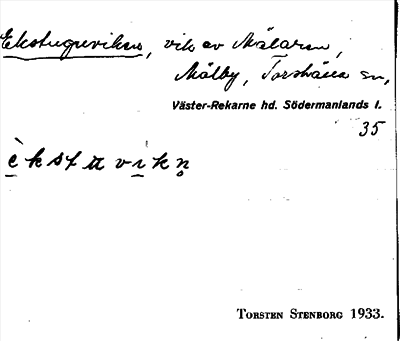 Ekstuguviken, vik av Mälaren,
Mälby, Torshälla sn,
Väster-Rekarne hd. Södermanlands l.
35
è k s t u v i k n̥
TORSTEN STENBORG 1933.